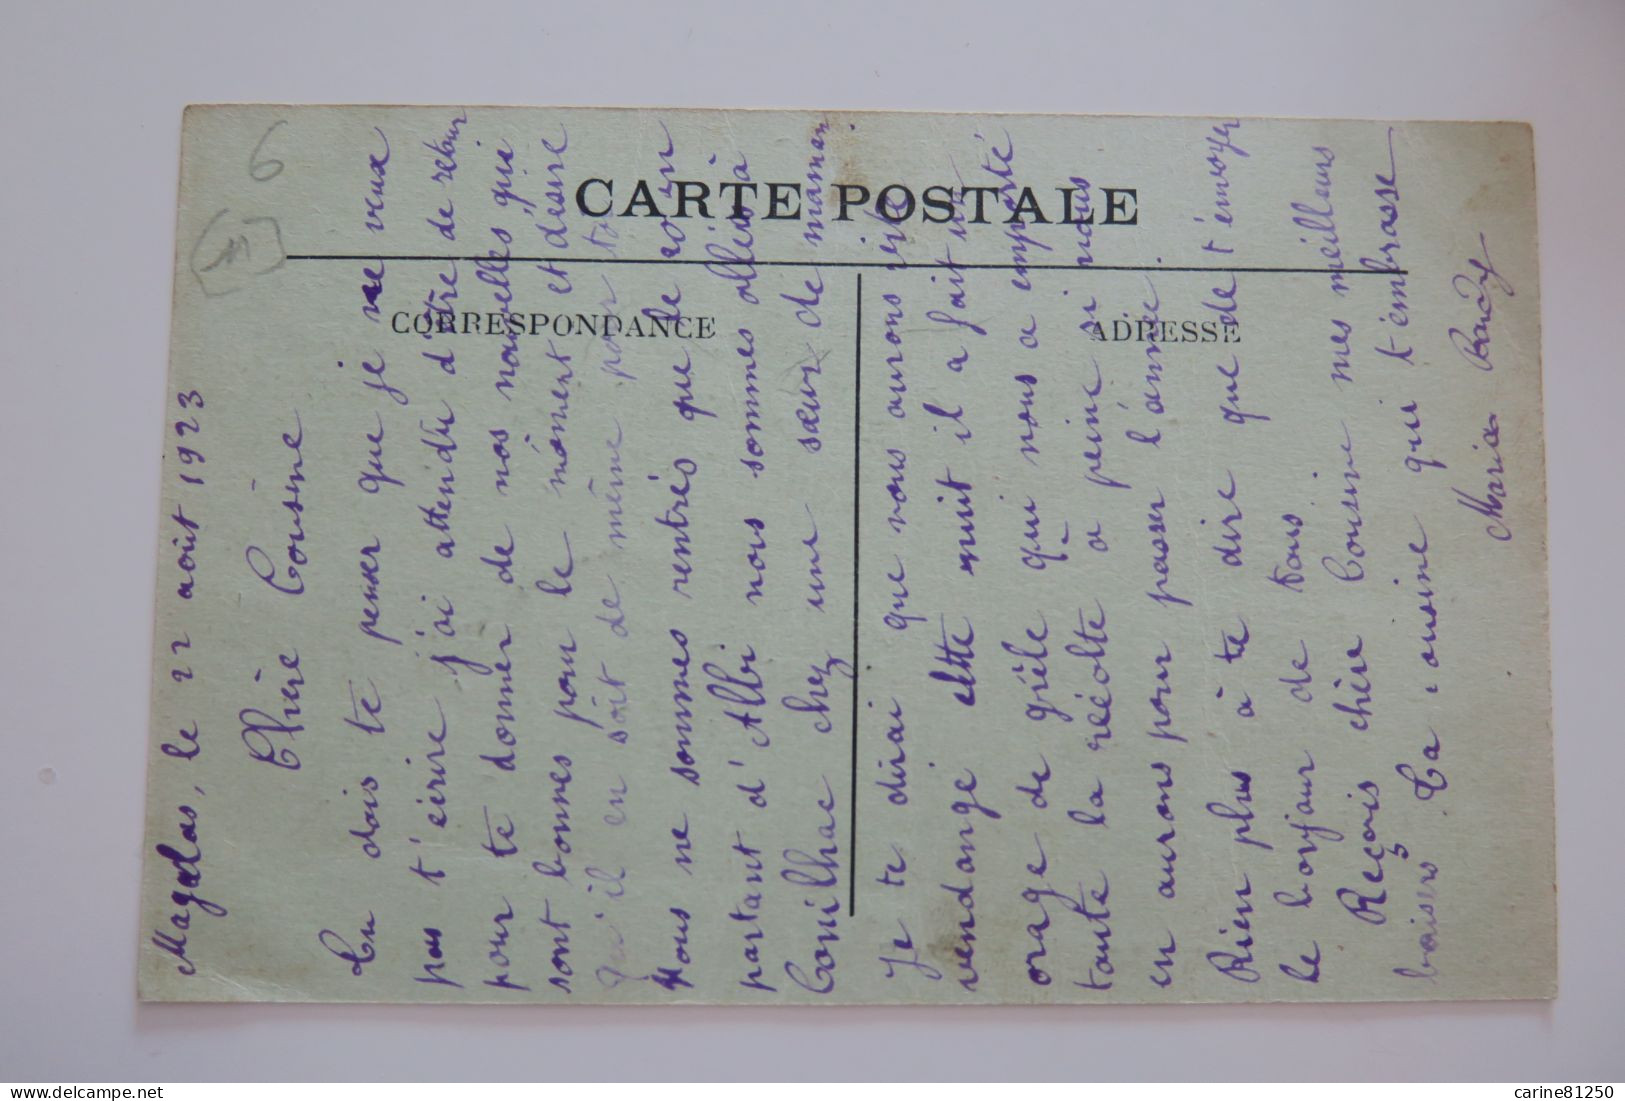 CARTE POSTALE
CORRESPONDANCE
ADRESSE
6
Magalas, le 22 août 1923
Chère Cousine
Tu dois te penser que je ne veux
pas t'écrire j'ai attendu d'être de retour
pour te donner de nos nouvelles qui
sont bonnes pour le moment et désire
qu'il en soit de même pour toi
Nous ne sommes rentrés que le soir
partant d'Albi nous sommes allés à
Conilhac chez une sœur de maman.
Je te dirai que nous aurons vite
vendangé cette nuit il a fait un
orage de grêle qui nous a emporté
toute la récolte a peine si nous
en aurons pour passer l'année.
Rien plus à te dire que de t'envoyer
le bonjour de tous
Reçois chère Cousine mes meilleurs
baisers. Ta cousine qui t'embrasse
Maria
www.delcampe.net
carine81250